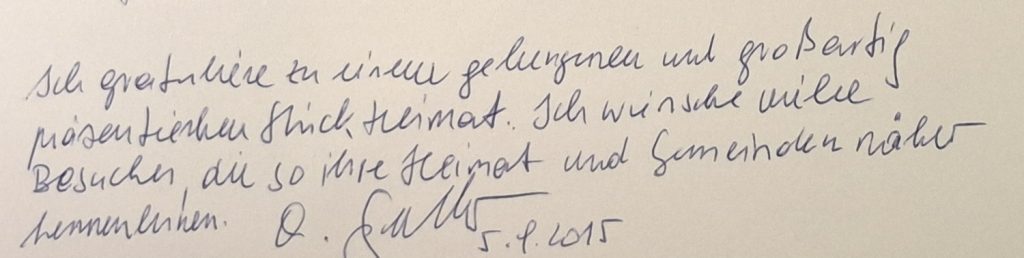 Ich gratuliere zu einem gelungenen und großartig
präsentierten Stück Heimat. Ich wünsche viele
Besucher, die so ihre Heimat und Gemeinden näher
kennenlernen.
5.9.2015